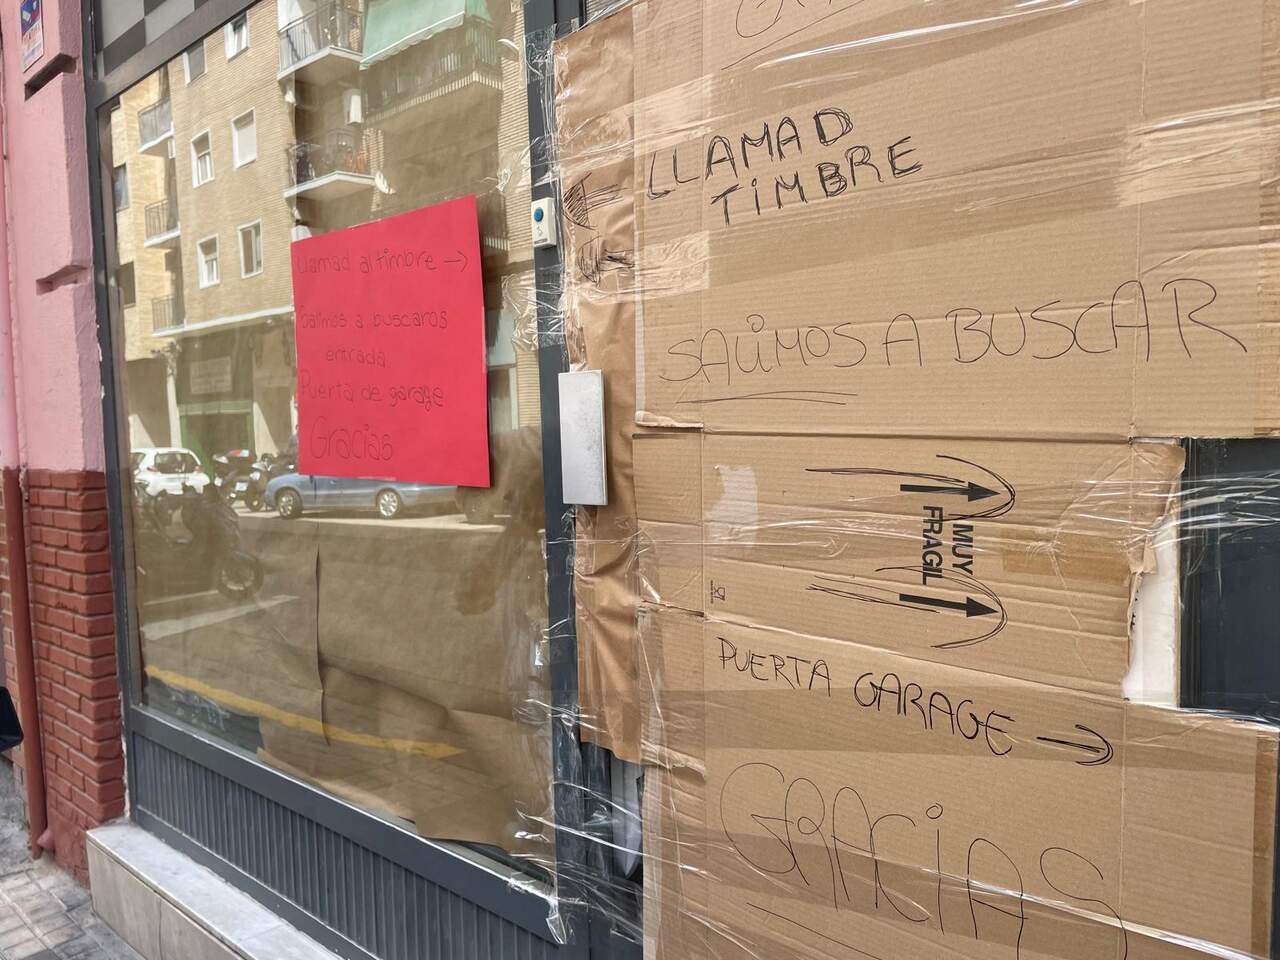 Llamad al timbre →
Salimos a buscaros
entrada
Puerta de garage
Gracias
LLAMAD
TIMBRE
SALIMOS A BUSCAR
MUY
FRAGIL
PUERTA GARAGE →
GRACIAS